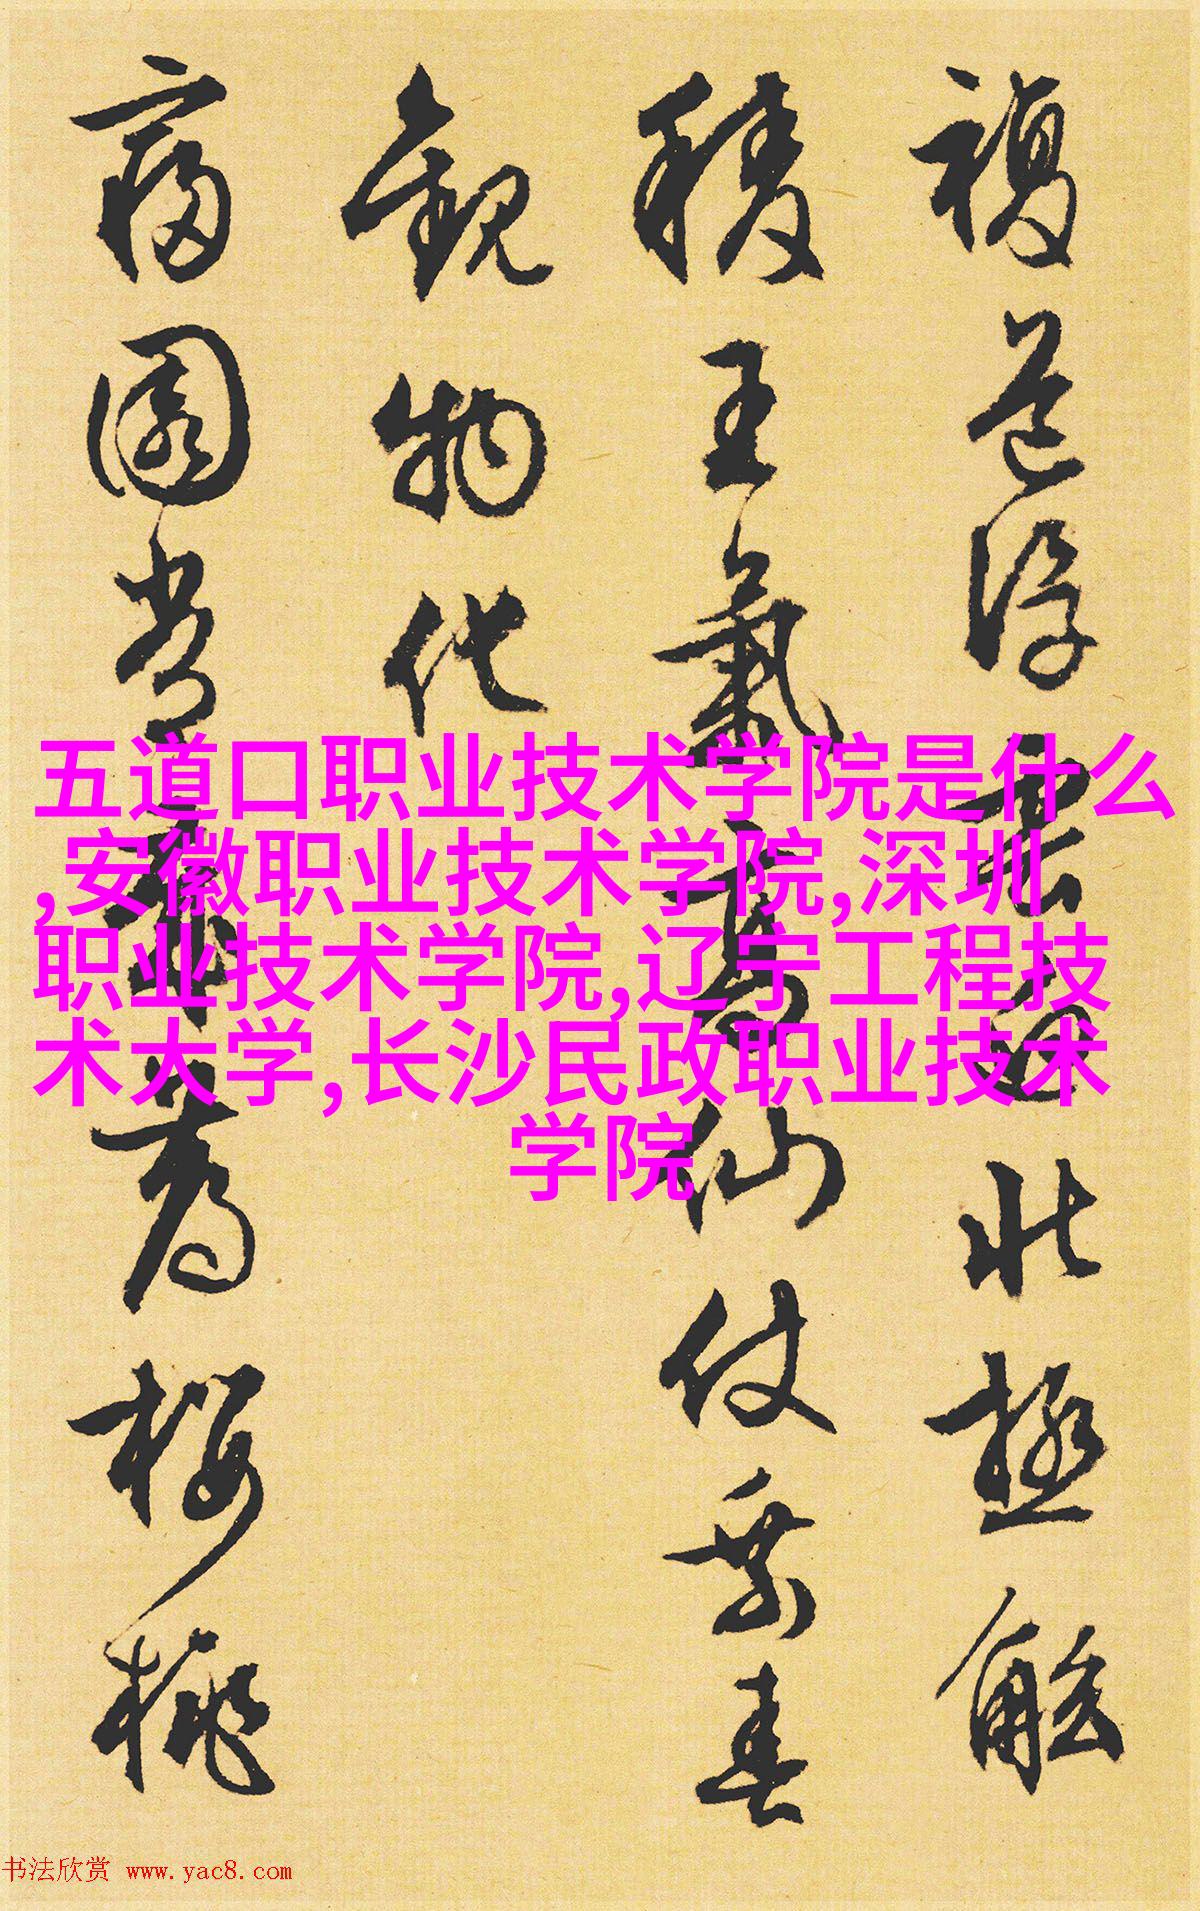 複道浮雲北極觚
稜王氣高仙仗乘春
觀物化
園薦櫻桃
五道口职业技术学院是什么
,安徽职业技术学院,深圳
职业技术学院,辽宁工程技
术大学,长沙民政职业技术
学院
书法欣赏 www.yac8.com